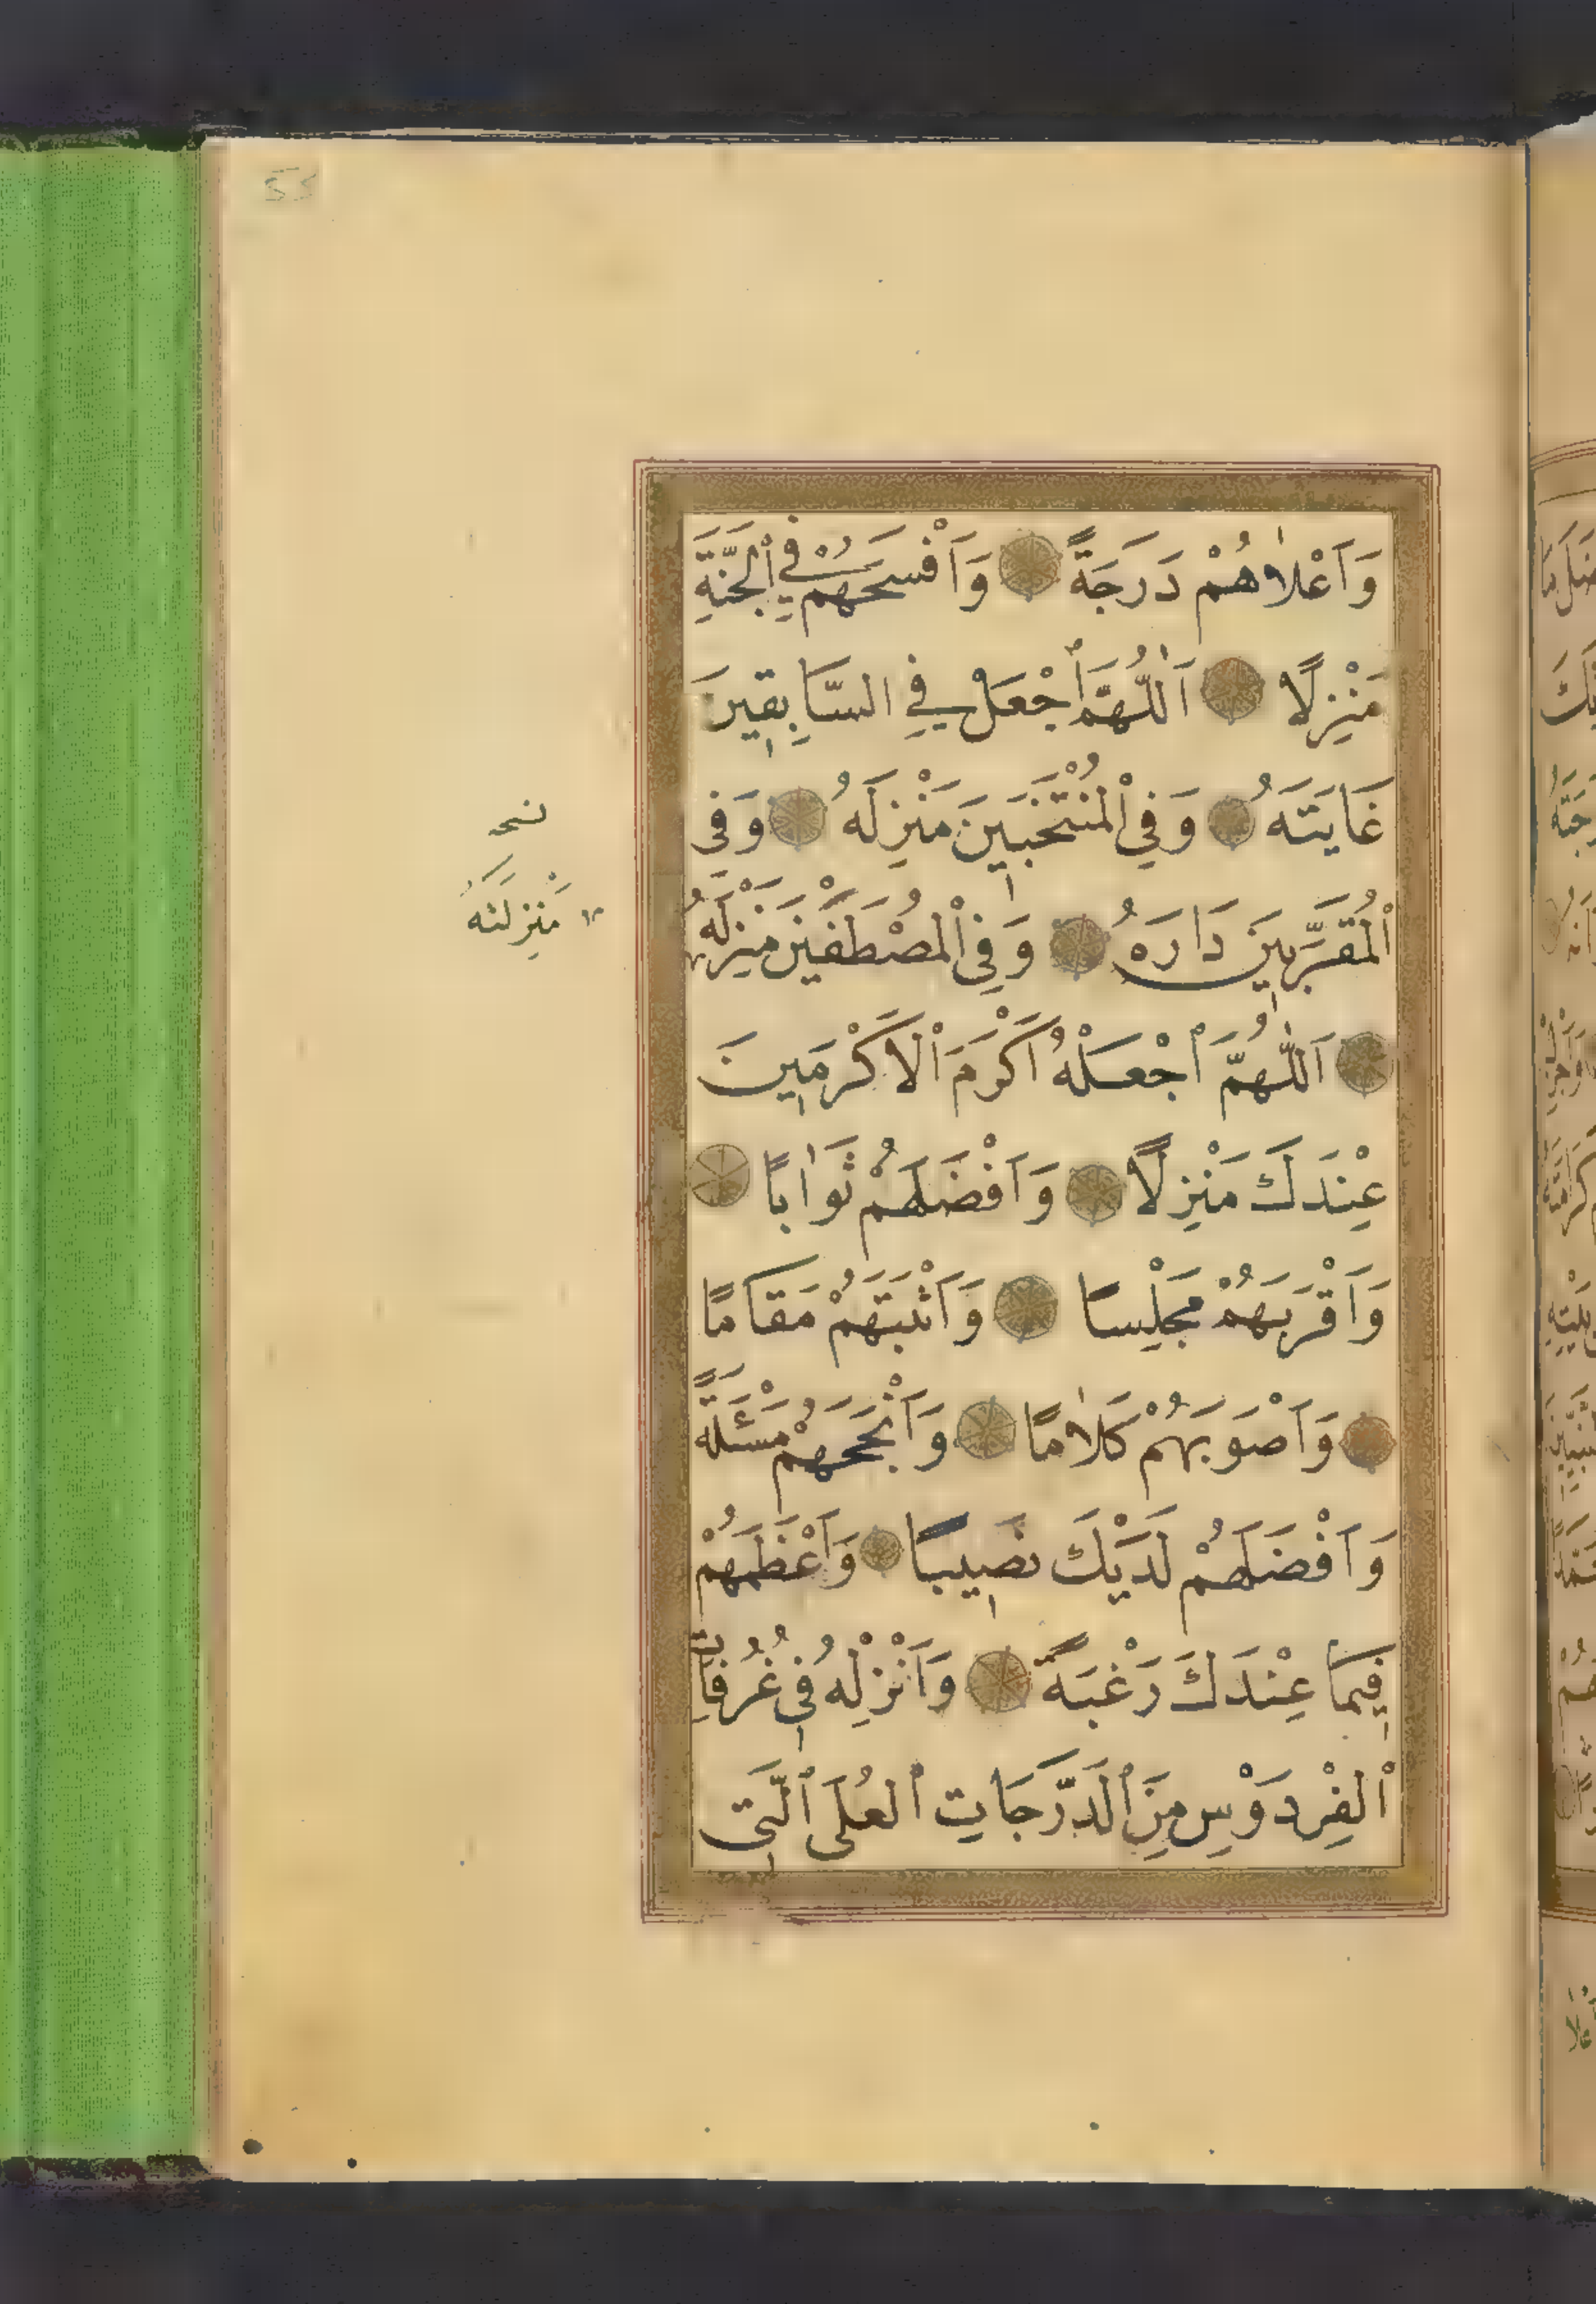 وَاَعْلَاهُمْ دَرَجَةً وَاَفْسَحَهُمْ فِي الْجَنَّةِ
مَنْزِلًا اَللّٰهُمَّ اجْعَلْ فِي السَّابِقِينَ
غَايَتَهُ وَفِي الْمُنْتَخَبِينَ مَنْزِلَهُ وَفِي
الْمُقَرَّبِينَ دَارَهُ وَفِي الْمُصْطَفَيْنَ مَنْزِلَهُ
اَللّٰهُمَّ اجْعَلْهُ اَكْرَمَ الْاَكْرَمِينَ
عِنْدَكَ مَنْزِلًا وَاَفْضَلَهُمْ ثَوَابًا
وَاَقْرَبَهُمْ مَجْلِسًا وَاَثْبَتَهُمْ مَقَامًا
وَاَصْوَبَهُمْ كَلَامًا وَاَنْجَحَهُمْ مَسْئَلَةً
وَاَفْضَلَهُمْ لَدَيْكَ نَصِيبًا وَاَعْظَمَهُمْ
فِيمَا عِنْدَكَ رَغْبَةً وَاَنْزِلْهُ فِي غُرُفَاتِ
الْفِرْدَوْسِ مِنَ الدَّرَجَاتِ الْعُلَى الَّتِي
نسخه
مَنْزِلَتَهُ
55